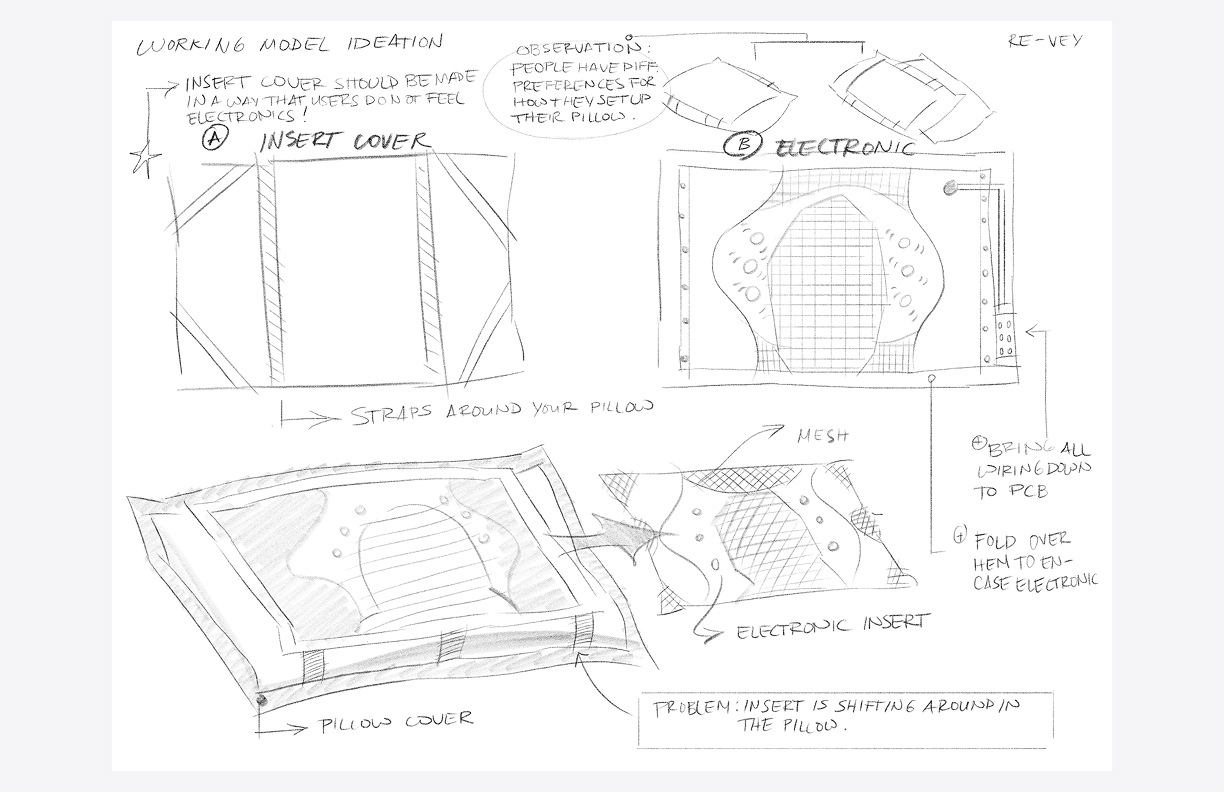 WORKING MODEL IDEATION
RE-VEY
INSERT COVER SHOULD BE MADE
IN A WAY THAT USERS DO NOT FEEL
ELECTRONICS!
OBSERVATION:
PEOPLE HAVE DIFF.
PREFERENCES FOR
HOW THEY SET UP
THEIR PILLOW.
A INSERT COVER
B ELECTRONIC
STRAPS AROUND YOUR PILLOW
MESH
+ BRING ALL
WIRING DOWN
TO PCB
+ FOLD OVER
HEM TO EN-
CASE ELECTRONIC
ELECTRONIC INSERT
PILLOW COVER
PROBLEM: INSERT IS SHIFTING AROUND IN
THE PILLOW.